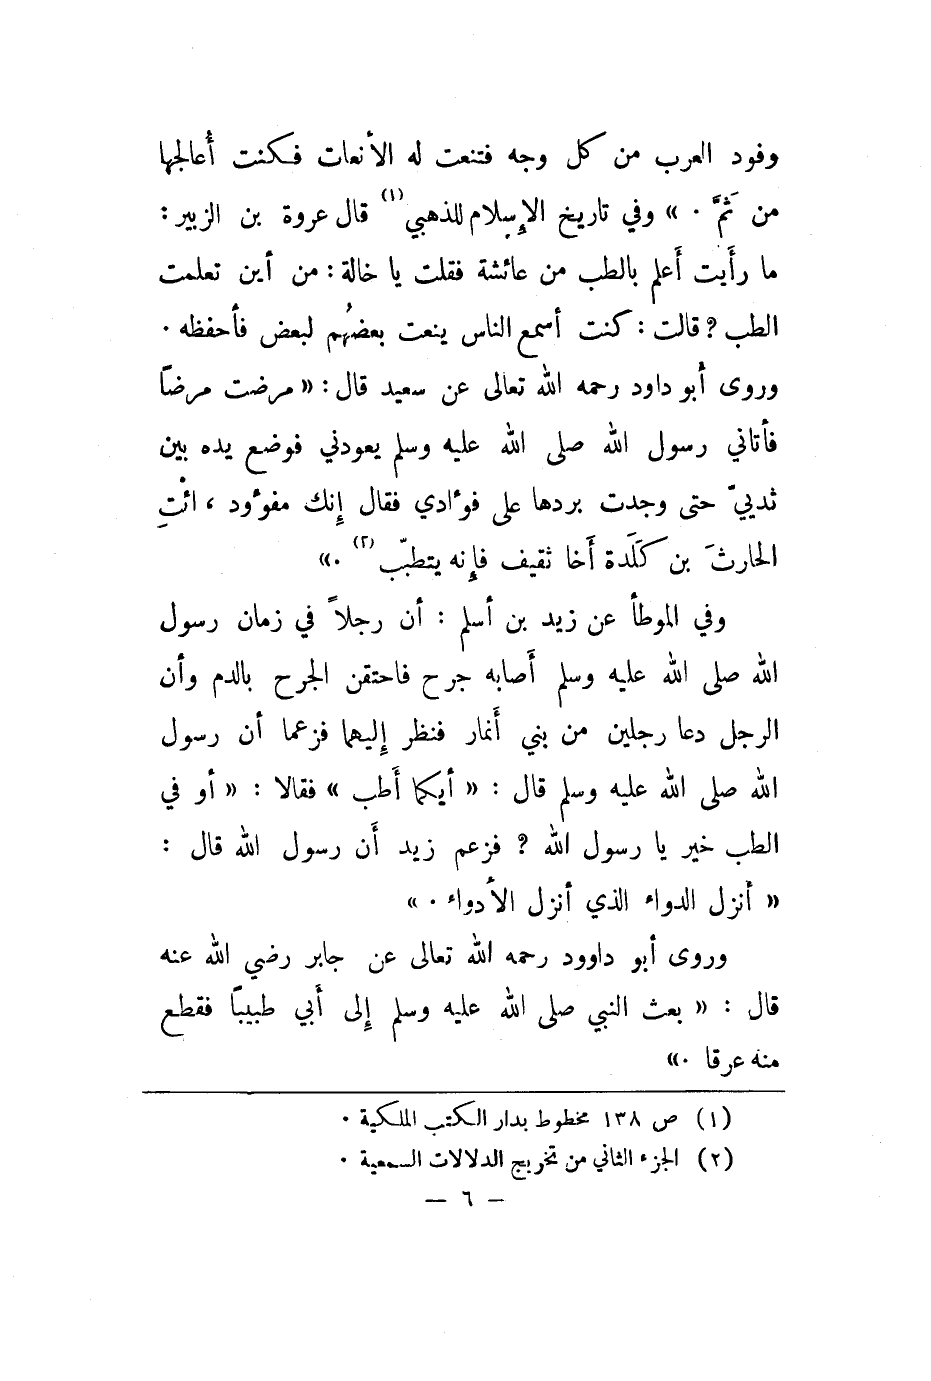 وفود العرب من كل وجه فتنعت له الأنعات فكنت أُعالجها
من ثَمَّ . » وفي تاريخ الإِسلام للذهبي (١) قال عروة بن الزبير :
ما رأَيت أَعلم بالطب من عائشة فقلت يا خالة : من أين تعلمت
الطب ؟ قالت : كنت أسمع الناس ينعت بعضُهم لبعض فأحفظه .
وروى أبو داود رحمه الله تعالى عن سعيد قال : « مرضت مرضاً
فأتاني رسول الله صلى الله عليه وسلم يعودني فوضع يده بين
ثدييّ حتى وجدت بردها على فوءادي فقال إِنك مفوءود ، ائْتِ
الحارثَ بن كَلَدة أَخا ثقيف فإِنه يتطبّب (٢) . »
وفي الموطأ عن زيد بن أسلم : أن رجلاً في زمان رسول
الله صلى الله عليه وسلم أَصابه جرح فاحتقن الجرح بالدم وأن
الرجل دعا رجلين من بني أَنمار فنظر إِليهما فزعما أن رسول
الله صلى الله عليه وسلم قال : « أيكما أَطب » فقالا : « أو في
الطب خير يا رسول الله ؟ فزعم زيد أَن رسول الله قال :
« أنزل الدواء الذي أنزل الأدواء . »
وروى أبو داوود رحمه الله تعالى عن جابر رضي الله عنه
قال : « بعث النبي صلى الله عليه وسلم إِلى أَبي طبيباً فقطع
منه عرقا . »
(١) ص ١٣٨ مخطوط بدار الكتب الملكية .
(٢) الجزء الثاني من تخريج الدلالات السمعية .
— ٦ —